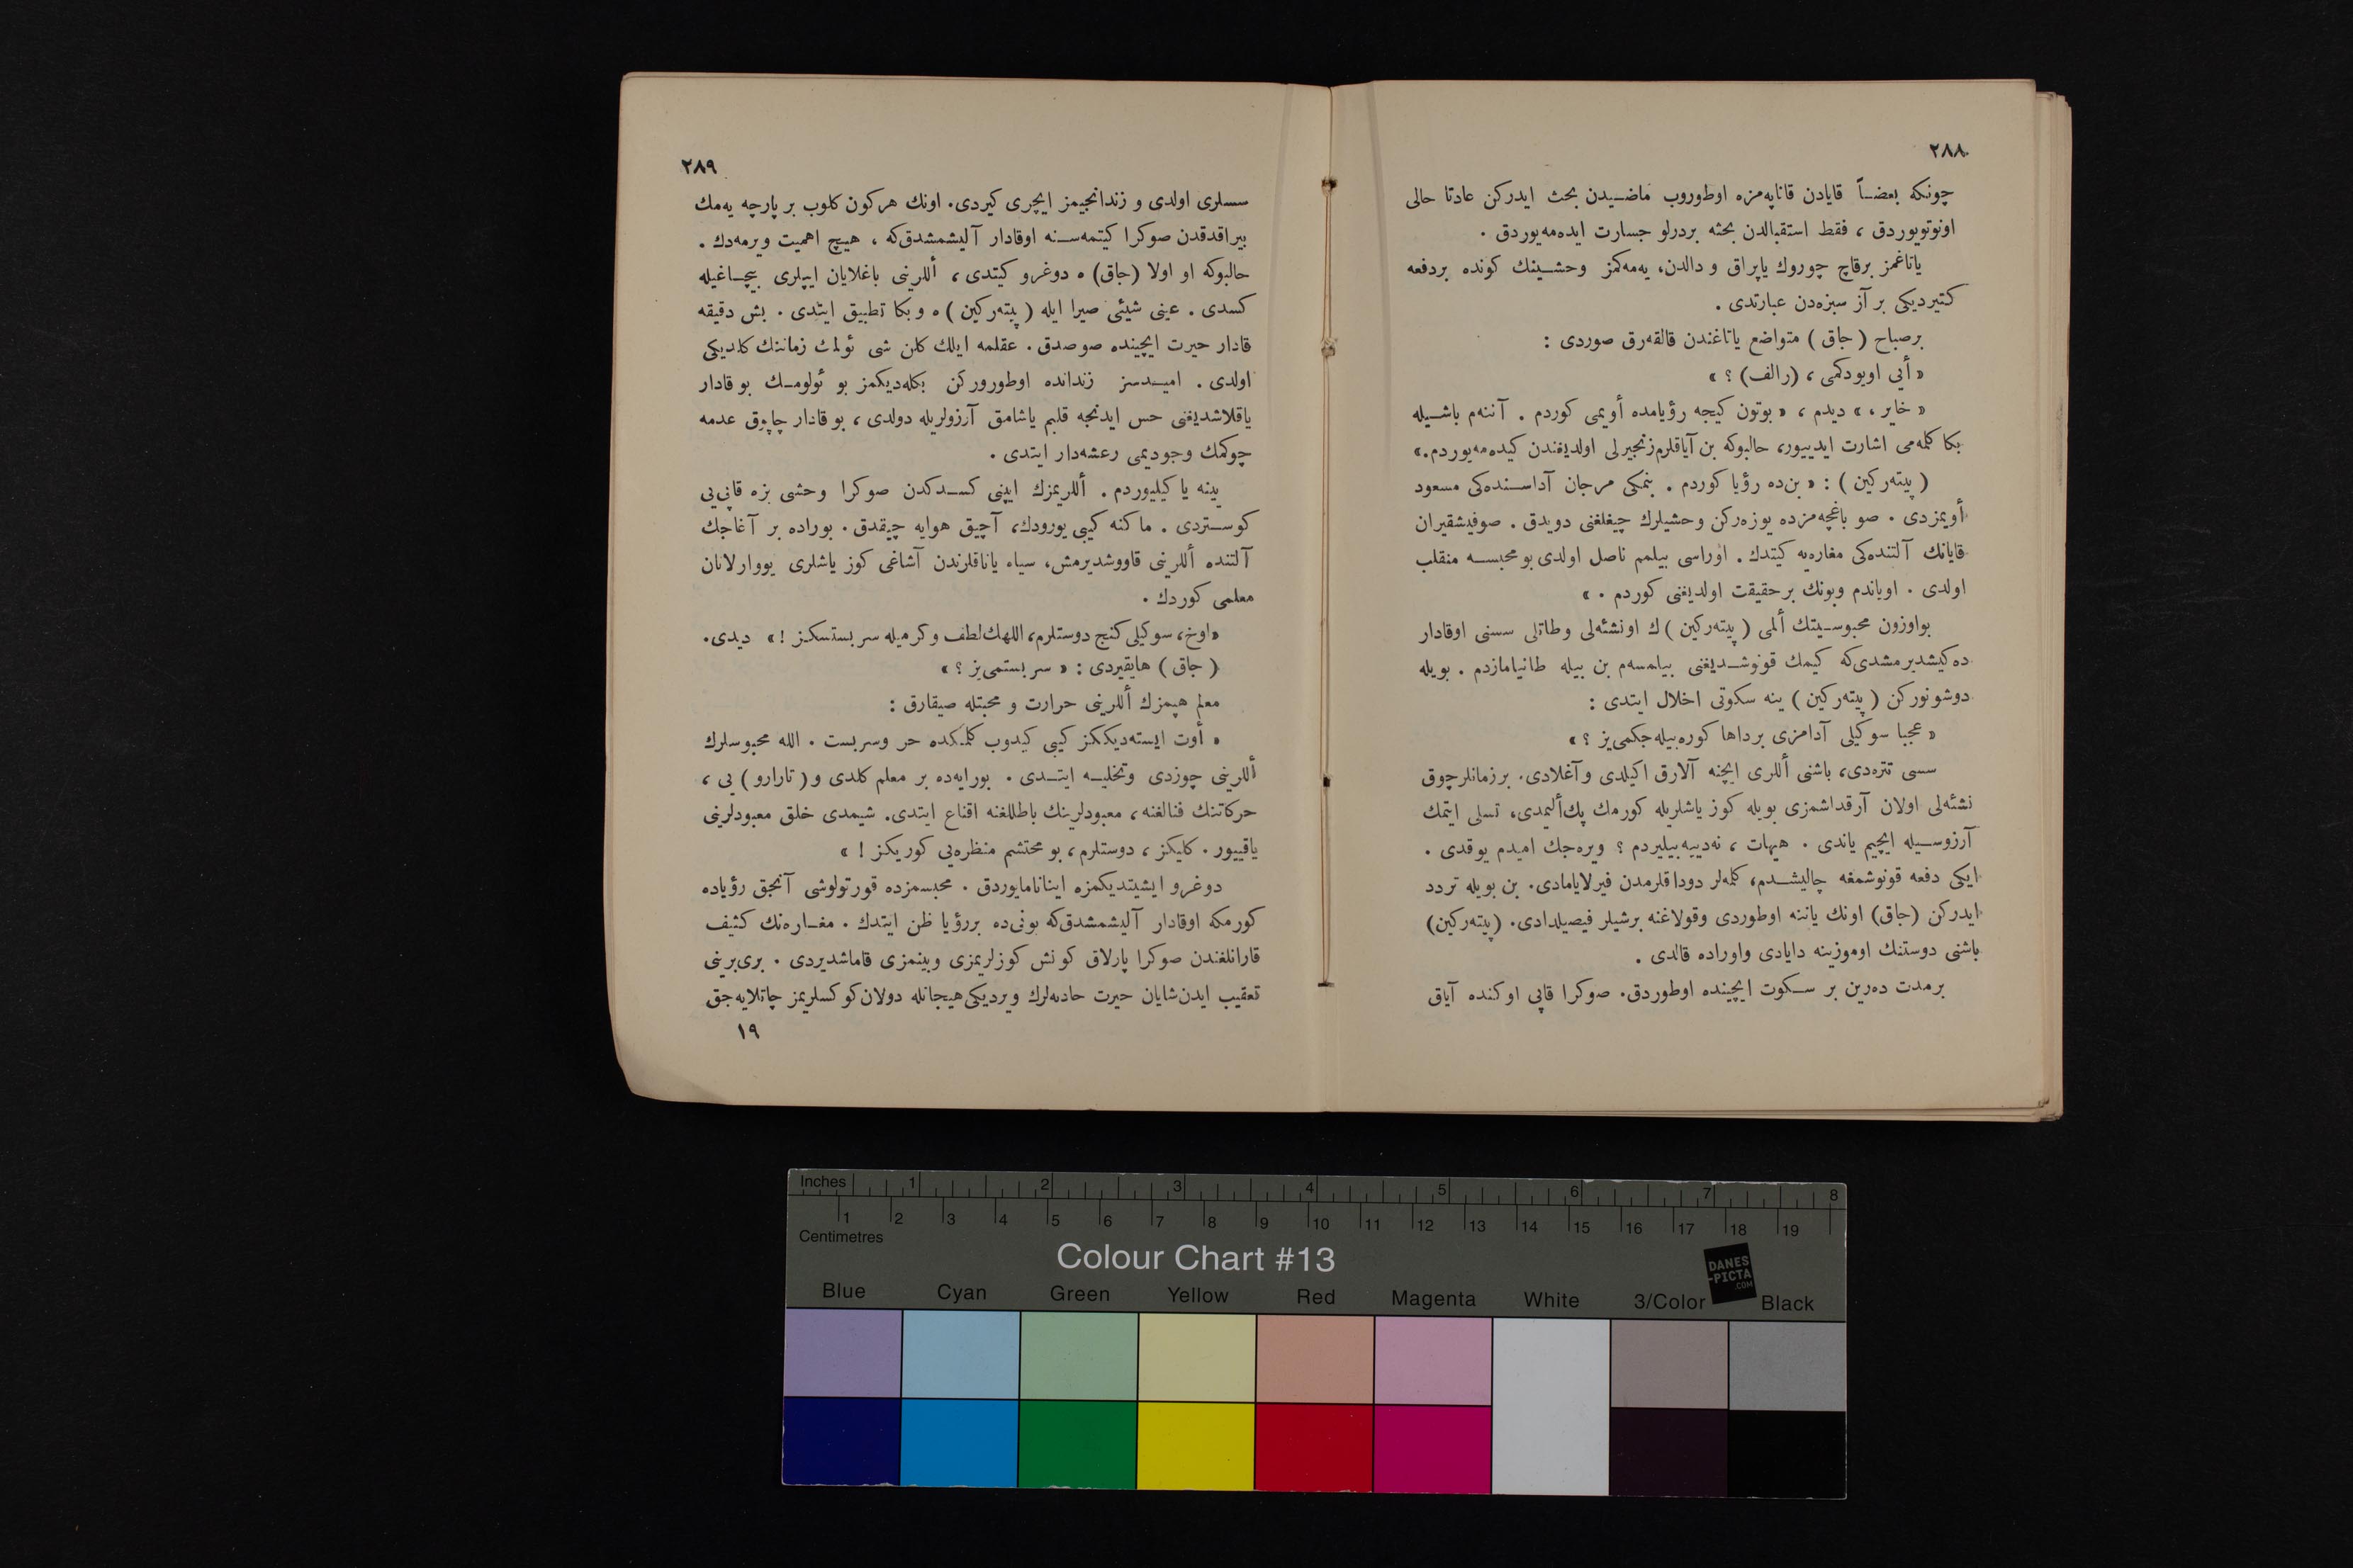 ٢٨٨
چونكه بعضاً قایادن قاناپه‌مزه اوطوروب ماضیدن بحث ایدركن عادتا حالی
اونوتویوردق ، فقط استقبالدن بحثه بردرلو جسارت ایده‌مه‌یوردق .
یاتاغمز برقاچ چوروك یاپراق و دالدن، یه‌مه‌كمز وحشینك كونده بردفعه
كتیردیكی بر آز سبزه‌دن عبارتدی .
برصباح ( جاق ) متواضع یاتاغندن قالقه‌رق صوردی :
« أیی اویودكمی ، (رالف) ؟ »
« خایر ، » دیدم ، « بوتون كیجه رؤیامده أویمی كوردم . آننه‌م باشیله
بكا كلمه‌می اشارت ایدییور، حالبوكه بن آیاقلرم زنجیرلی اولدیغندن كیده‌مه‌یوردم.»
( پیته‌ركین ) : « بن‌ده رؤیا كوردم . بنمكی مرجان آداسنده‌كی مسعود
أویمزدی . صو باغچه‌مزده یوزه‌ركن وحشیلرك چیغلغنی دویدق . صوفیشقیران
قایانك آلتنده‌كی مغاره‌یه كیتدك . اوراسی بیلمم ناصل اولدی بو محبسه منقلب
اولدی . اویاندم وبونك برحقیقت اولدیغنی كوردم . »
بواوزون محبوسیتك ألمی ( پیته‌ركین ) ك اونشئه‌لی وطاتلی سسنی اوقادار
ده‌كیشدیرمشدی‌كه كیمك قونوشدیغنی بیلمسه‌م بن بیله طانیامازدم . بویله
دوشونوركن ( پیته‌ركین ) ینه سكوتی اخلال ایتدی :
« عجبا سوكیلی آدامزی برداها كوره‌بیله‌جكمی‌یز ؟ »
سسی تتره‌دی، باشنی أللری ایچنه آلارق اكیلدی وآغلادی. برزمانلر چوق
نشئه‌لی اولان آرقداشمزی بویله كوز یاشلریله كورمك پك‌ألیمدی، تسلی ایتمك
آرزوسیله ایچیم یاندی . هیهات ، نه‌دییه‌بیلیردم ؟ ویره‌جك امیدم یوقدی .
ایكی دفعه قونوشمغه چالیشدم، كلمه‌لر دوداقلرمدن فیرلایامادی. بن بویله تردد
ایدركن (جاق) اونك یاننه اوطوردی وقولاغنه برشیلر فیصیلدادی. (پیته‌ركین)
باشنی دوستنك اوموزینه دایادی واوراده قالدی .
برمدت ده‌رین بر سكوت ایچینده اوطوردق. صوكرا قاپی اوكنده آیاق
٢٨٩
سسلری اولدی و زندانجیمز ایچری كیردی. اونك هركون كلوب بر پارچه یه‌مك
بیراقدقدن صوكرا كیتمه‌سنه اوقادار آلیشمشدق‌كه ، هیچ اهمیت ویرمه‌دك .
حالبوكه او اولا (جاق) ه دوغرو كیتدی ، أللرینی باغلایان ایپلری بیچاغیله
كسدی . عینی شیئی صیرا ایله ( پیته‌ركین ) ه و بكا تطبیق ایتدی . بش دقیقه
قادار حیرت ایچینده صوصدق . عقلمه ایلك كلن شی ئولمك زماننك كلدیكی
اولدی . امیدسز زندانده اوطوروركن بكله‌دیكمز بو ئولومك بو قادار
یاقلاشدیغنی حس ایدنجه قلبم یاشامق آرزولریله دولدی ، بو قادار چابوق عدمه
چوكمك وجودیمی رعشه‌دار ایتدی .
یینه یا كیلیوردم . أللریمزك ایپنی كسدكدن صوكرا وحشی بزه قاپی‌یی
كوستردی . ماكنه كیبی یورودك، آچیق هوایه چیقدق. بوراده بر آغاجك
آلتنده أللرینی قاووشدیرمش، سیاه یاناقلرندن آشاغی كوز یاشلری یووارلانان
معلمی كوردك .
«اوخ، سوكیلی كنج دوستلرم، اللهك لطف و كرمیله سربستسكز !» دیدی.
( جاق ) هایقیردی : « سربستمی‌یز ؟ »
معلم هپمزك أللرینی حرارت و محبتله صیقارق :
« أوت ایسته‌دیككز كیبی كیدوب كلمكده حر وسربست . الله محبوسلرك
أللرینی چوزدی وتخلیه ایتدی . بورایه‌ده بر معلم كلدی و ( تارارو ) یی ،
حركاتنك فنالغنه ، معبودلرینك باطللغنه اقناع ایتدی. شیمدی خلق معبودلرینی
یاقییور . كلیكز ، دوستلرم ، بو محتشم منظره‌یی كوریكز ! »
دوغرو ایشیتدیكمزه اینانامایوردق . محبسمزده قورتولوشی آنجق رؤیاده
كورمكه اوقادار آلیشمشدق‌كه بونی‌ده بررؤیا ظن ایتدك . مغاره‌نك كثیف
قارانلغندن صوكرا پارلاق كونش كوزلریمزی وبینمزی قاماشدیردی . بری‌برینی
تعقیب ایدن شایان حیرت حادثه‌لرك ویردیكی هیجانله دولان كوكسلریمز چاتلایه‌جق
١٩
Inches 1 2 3 4 5 6 7 8
1 2 3 4 5 6 7 8 9 10 11 12 13 14 15 16 17 18 19
Centimetres
Colour Chart #13
DANES
-PICTA
.COM
Blue Cyan Green Yellow Red Magenta White 3/Color Black